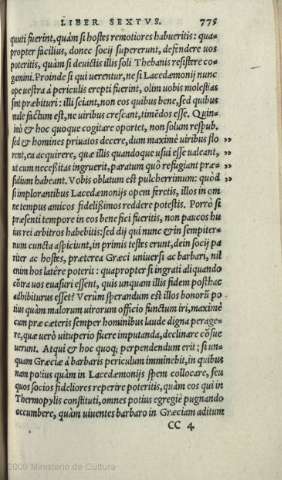 LIBER SEXTVS. 775
quuti fuerint, quàm si hostes remotiores habueritis: qua-
propter facilius, donec socij supererunt, defendere uos
poteritis, quàm si deuictis illis soli Thebanis resistere co-
gemini. Proinde si qui uerentur, ne si Lacedæmonij nunc
ope uestra à periculis erepti fuerint, olim uobis molestias
sint præbituri: illi sciant, non eos quibus bene, sed quibus
male factum est, ne uiribus crescant, timēdos esse. Quin-
imò & hoc quoque cogitare oportet, non solum respub.
sed & homines priuatos decere, dum maximè uiribus flo
rent, ea acquirere, quæ illis quandoque usui esse ualeant,
ut cum necessitas ingruerit, paratum quò refugiant præ-
sidium habeant. Vobis oblatum est pulcherrimum: quòd
si implorantibus Lacedæmonijs opem fertis, illos in om
ne tempus amicos fidelissimos reddere potestis. Porrò si
præsenti tempore in eos benefici fueritis, non paucos hu
ius rei arbitros habebitis: sed dij qui nunc & in sempiter-
num cuncta aspiciunt, in primis testes erunt, dein socij pa
riter ac hostes, præterea Græci uniuersi ac barbari, nil
enim hos latêre poterit: quapropter si ingrati aliquando
cōtra uos euasuri essent, quis unquam illis fidem posthac
adhibiturus esset? Verùm sperandum est illos honorū po
tius quàm malorum uirorum officio functum iri, maximè
cum præ cæteris semper hominibus laude digna perage-
re, quæ uerò uituperio fuere imputanda, declinare cōsue
uerunt. Atqui & hoc quoq; perpendendum erit: si un-
quam Græciæ à barbaris periculum imminebit, in quibus
nam potius quàm in Lacedæmonijs spem collocare, seu
quos socios fideliores reperire poteritis, quàm eos qui in
Thermopylis constituti, omnes potius egregiè pugnando
occumbere, quàm uiuentes barbaro in Græciam aditum
CC 4
© 2009 Ministerio de Cultura